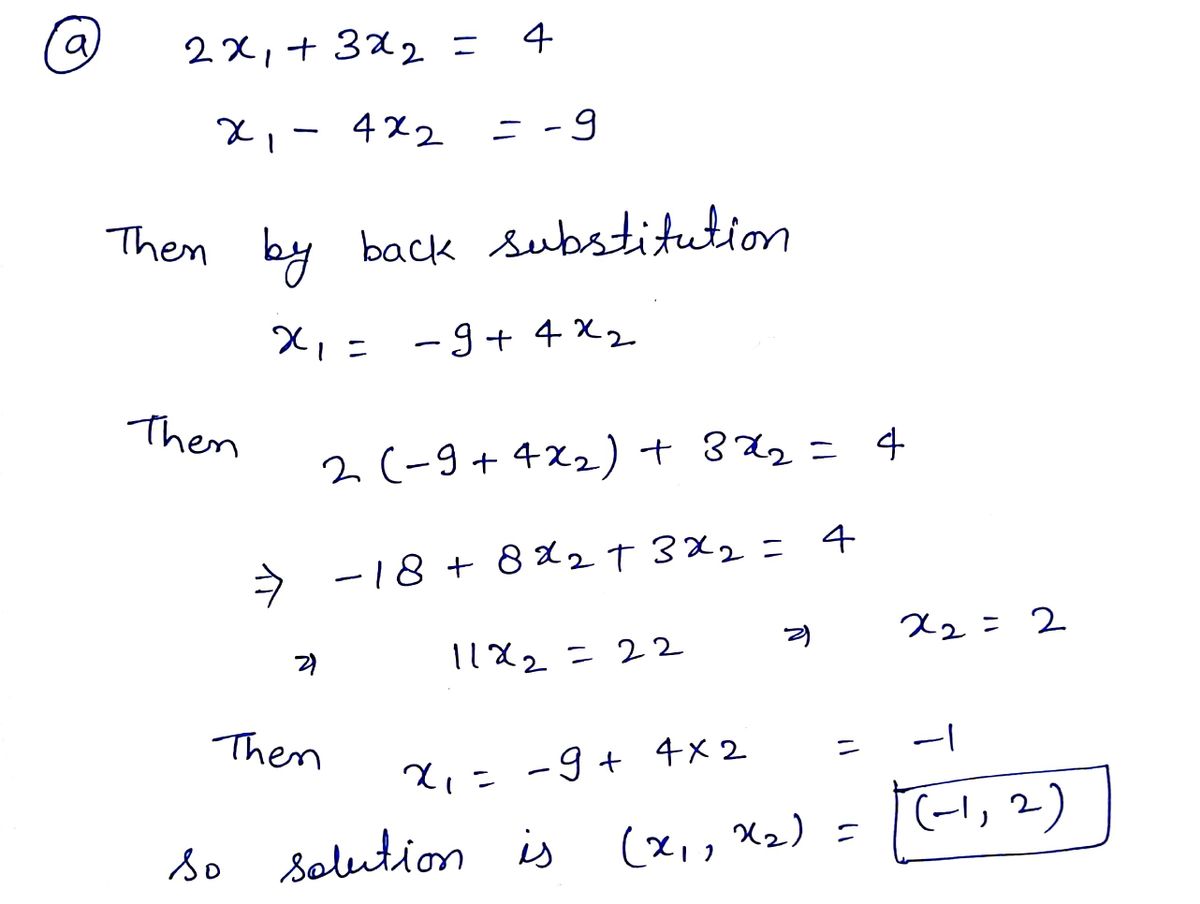 (a) 2x₁ + 3x₂ = 4
x₁ - 4x₂ = -9
Then by back substitution
x₁ = -9 + 4x₂
Then 2(-9 + 4x₂) + 3x₂ = 4
⇒ -18 + 8x₂ + 3x₂ = 4
⇒ 11x₂ = 22 ⇒ x₂ = 2
Then x₁ = -9 + 4×2 = -1
so solution is (x₁, x₂) = (-1, 2)